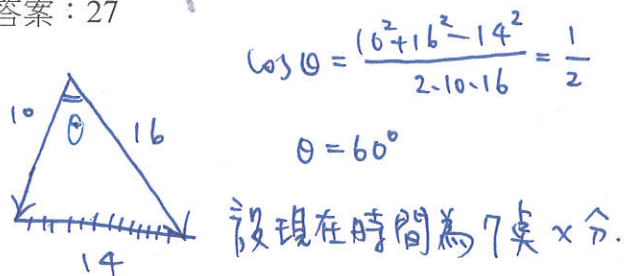 答案：27
cosθ = (10²+16²-14²)/(2·10·16) = 1/2
10
θ
16
θ = 60°
14
設現在時間為7點x分.